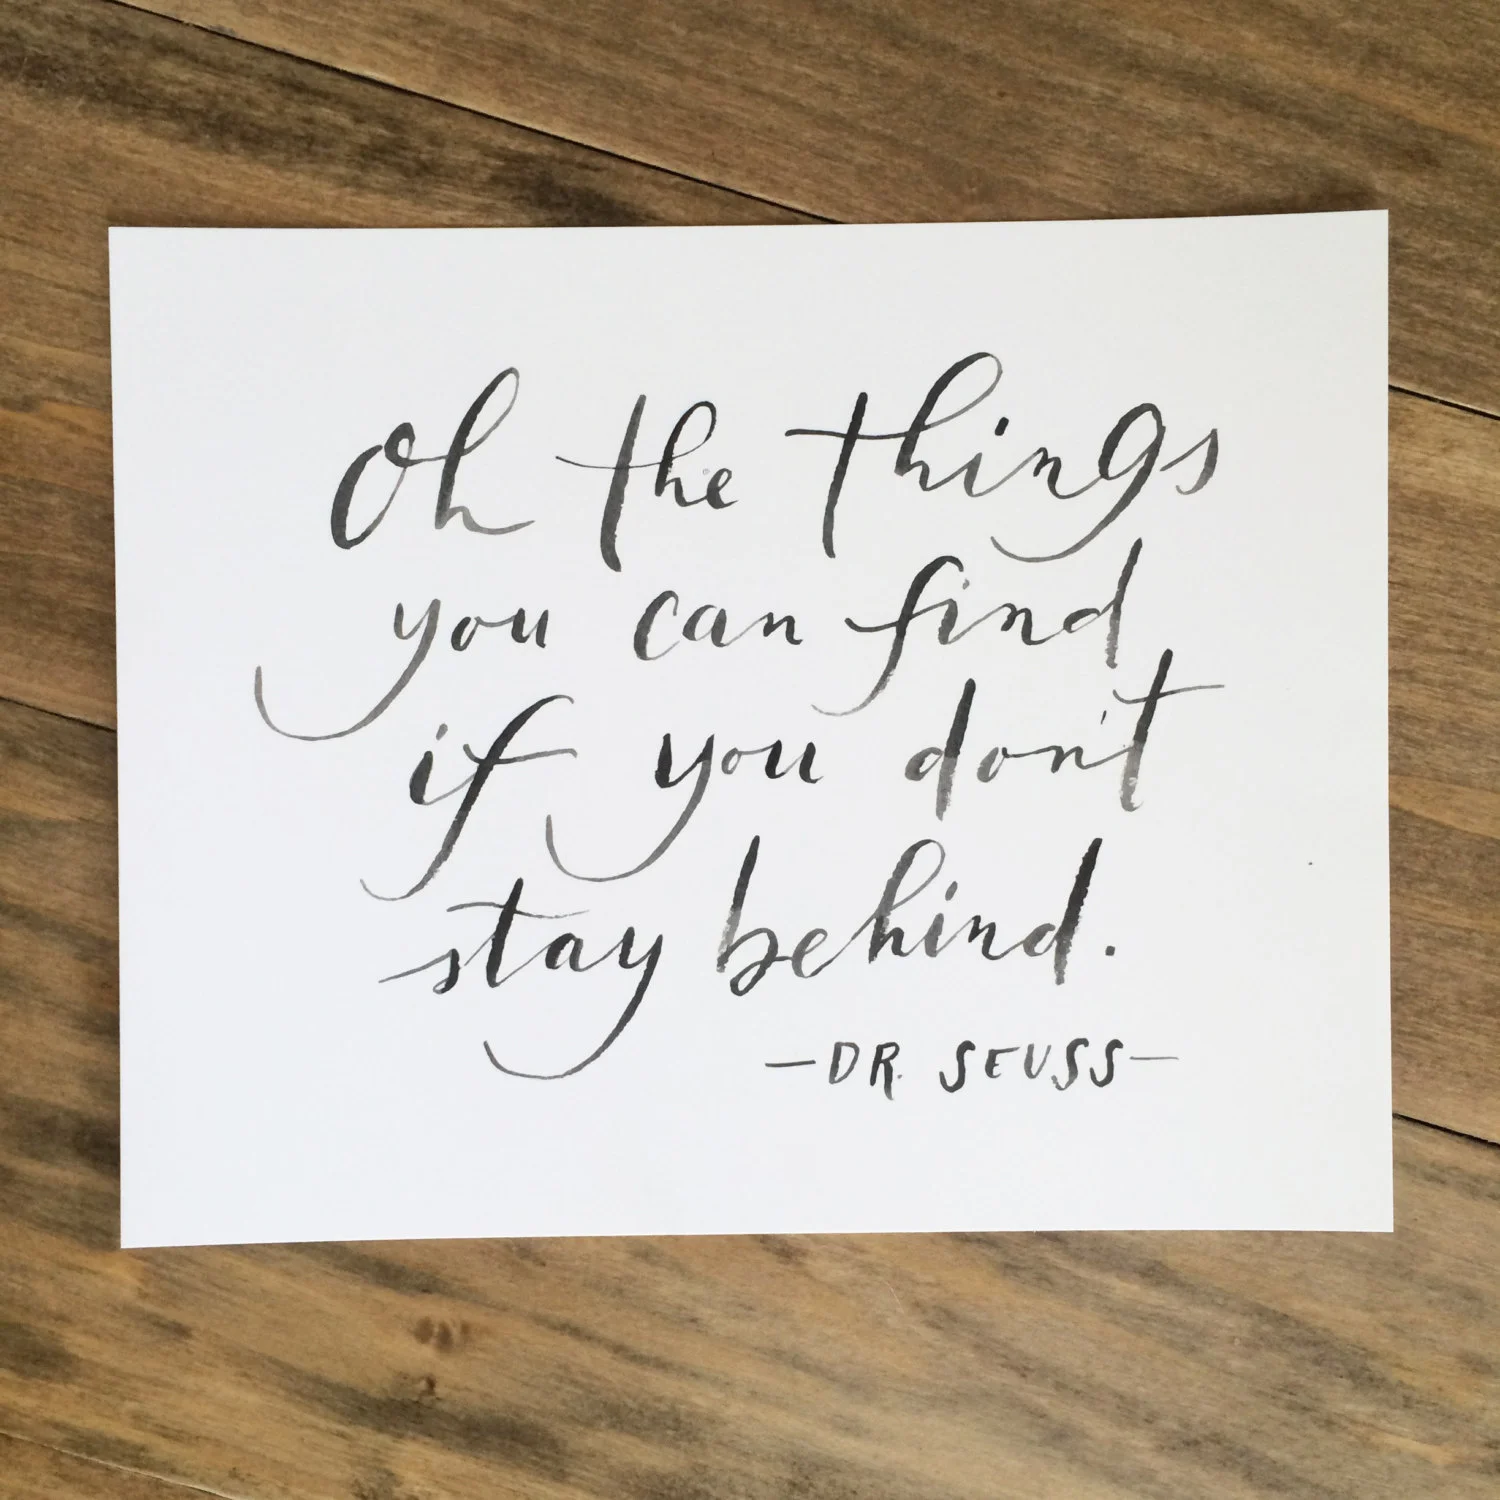 Oh the things
you can find
if you don't
stay behind.
—DR. SEUSS—